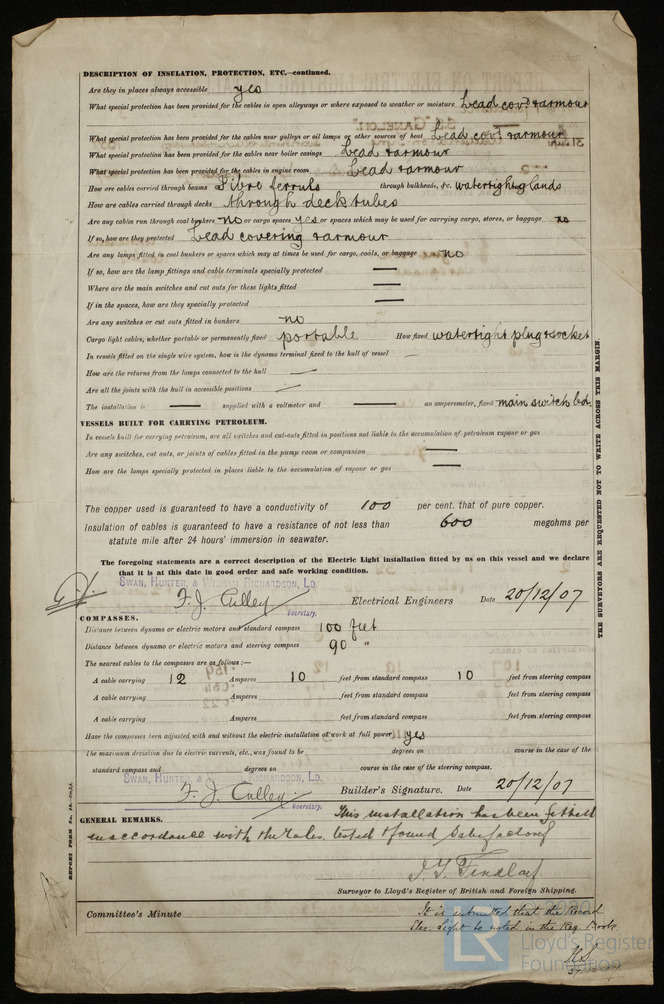 DESCRIPTION OF INSULATION, PROTECTION, ETC.—continued.
Are they in places always accessible yes
What special protection has been provided for the cables in open alleyways or where exposed to weather or moisture Lead covd & armour
What special protection has been provided for the cables near galleys or oil lamps or other sources of heat Lead covd & armour
What special protection has been provided for the cables near boiler casings Lead & armour
What special protection has been provided for the cables in engine room Lead & armour
How are cables carried through beams Fibre ferruls through bulkheads, &c. watertight glands
How are cables carried through decks through deck tubes
Are any cables run through coal bunkers no or cargo spaces yes or spaces which may be used for carrying cargo, stores, or baggage no
If so, how are they protected Lead covering & armour
Are any lamps fitted in coal bunkers or spaces which may at times be used for cargo, coals, or baggage no
If so, how are the lamp fittings and cable terminals specially protected —
Where are the main switches and cut outs for these lights fitted —
If in the spaces, how are they specially protected —
Are any switches or cut outs fitted in bunkers no
Cargo light cables, whether portable or permanently fixed portable How fixed watertight plug & socket
In vessels fitted on the single wire system, how is the dynamo terminal fixed to the hull of vessel —
How are the returns from the lamps connected to the hull —
Are all the joints with the hull in accessible positions —
The installation is — supplied with a voltmeter and — an amperemeter, fixed main switch bd.
VESSELS BUILT FOR CARRYING PETROLEUM.
In vessels built for carrying petroleum, are all switches and cut-outs fitted in positions not liable to the accumulation of petroleum vapour or gas
Are any switches, cut outs, or joints of cables fitted in the pump room or companion —
How are the lamps specially protected in places liable to the accumulation of vapour or gas —
The copper used is guaranteed to have a conductivity of 100 per cent. that of pure copper.
Insulation of cables is guaranteed to have a resistance of not less than 600 megohms per
statute mile after 24 hours' immersion in seawater.
The foregoing statements are a correct description of the Electric Light installation fitted by us on this vessel and we declare
that it is at this date in good order and safe working condition.
SWAN, HUNTER, & WIGHAM RICHARDSON, LD.
F. J. Culley Electrical Engineers Date 20/12/07
Secretary.
COMPASSES.
Distance between dynamo or electric motors and standard compass 100 feet
Distance between dynamo or electric motors and steering compass 90 "
The nearest cables to the compasses are as follows:—
A cable carrying 12 Amperes 10 feet from standard compass 10 feet from steering compass
A cable carrying Amperes feet from standard compass feet from steering compass
A cable carrying Amperes feet from standard compass feet from steering compass
Have the compasses been adjusted with and without the electric installation at work at full power yes
The maximum deviation due to electric currents, etc., was found to be degrees on course in the case of the
standard compass and degrees on course in the case of the steering compass.
SWAN, HUNTER, & WIGHAM RICHARDSON, LD.
F. J. Culley Builder's Signature. Date 20/12/07
Secretary.
GENERAL REMARKS. This installation has been fitted
in accordance with the rules, tested & found satisfactory
J. T. Findlay
Surveyor to Lloyd's Register of British and Foreign Shipping.
Committee's Minute
It is submitted that the Record
Elec. Light be noted in the Reg. Book.
THE SURVEYORS ARE REQUESTED NOT TO WRITE ACROSS THIS MARGIN.
LR Lloyd's Register
Foundation